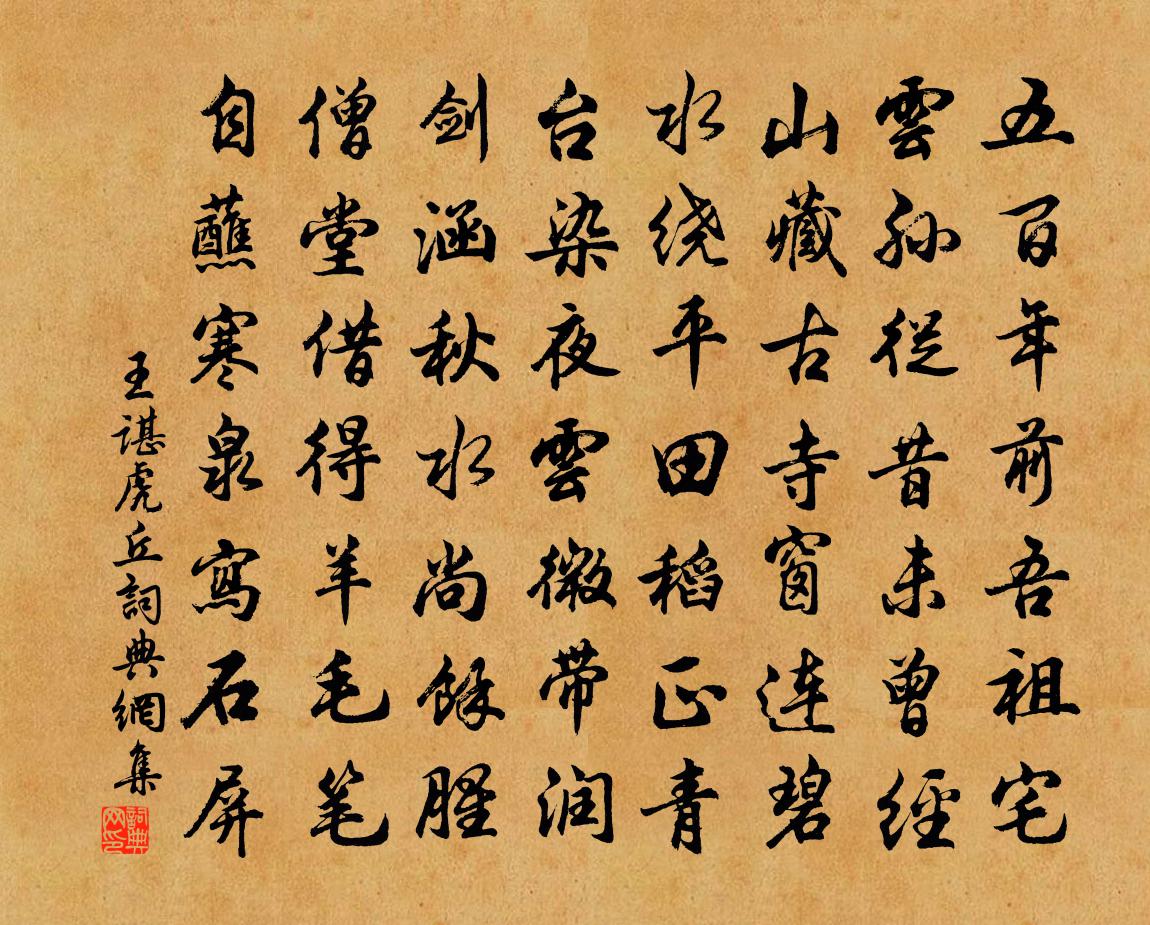 五百年前吾祖宅
雲孙從昔未曾經
山藏古寺窗連碧
水绕平田稻正青
台染夜雲微带润
剑涵秋水尚餘腥
僧堂借得羊毛笔
自蘸寒泉寫石屏
王谌虎丘詞典網集
詞典网印